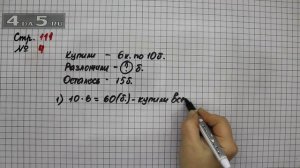 4DA5.RU
Стр. 111
№ 4
Купили - 6к. по 10б.
Разложили - ? б.
Осталось - 15б.
1) 10·6=60(б.)-купили все